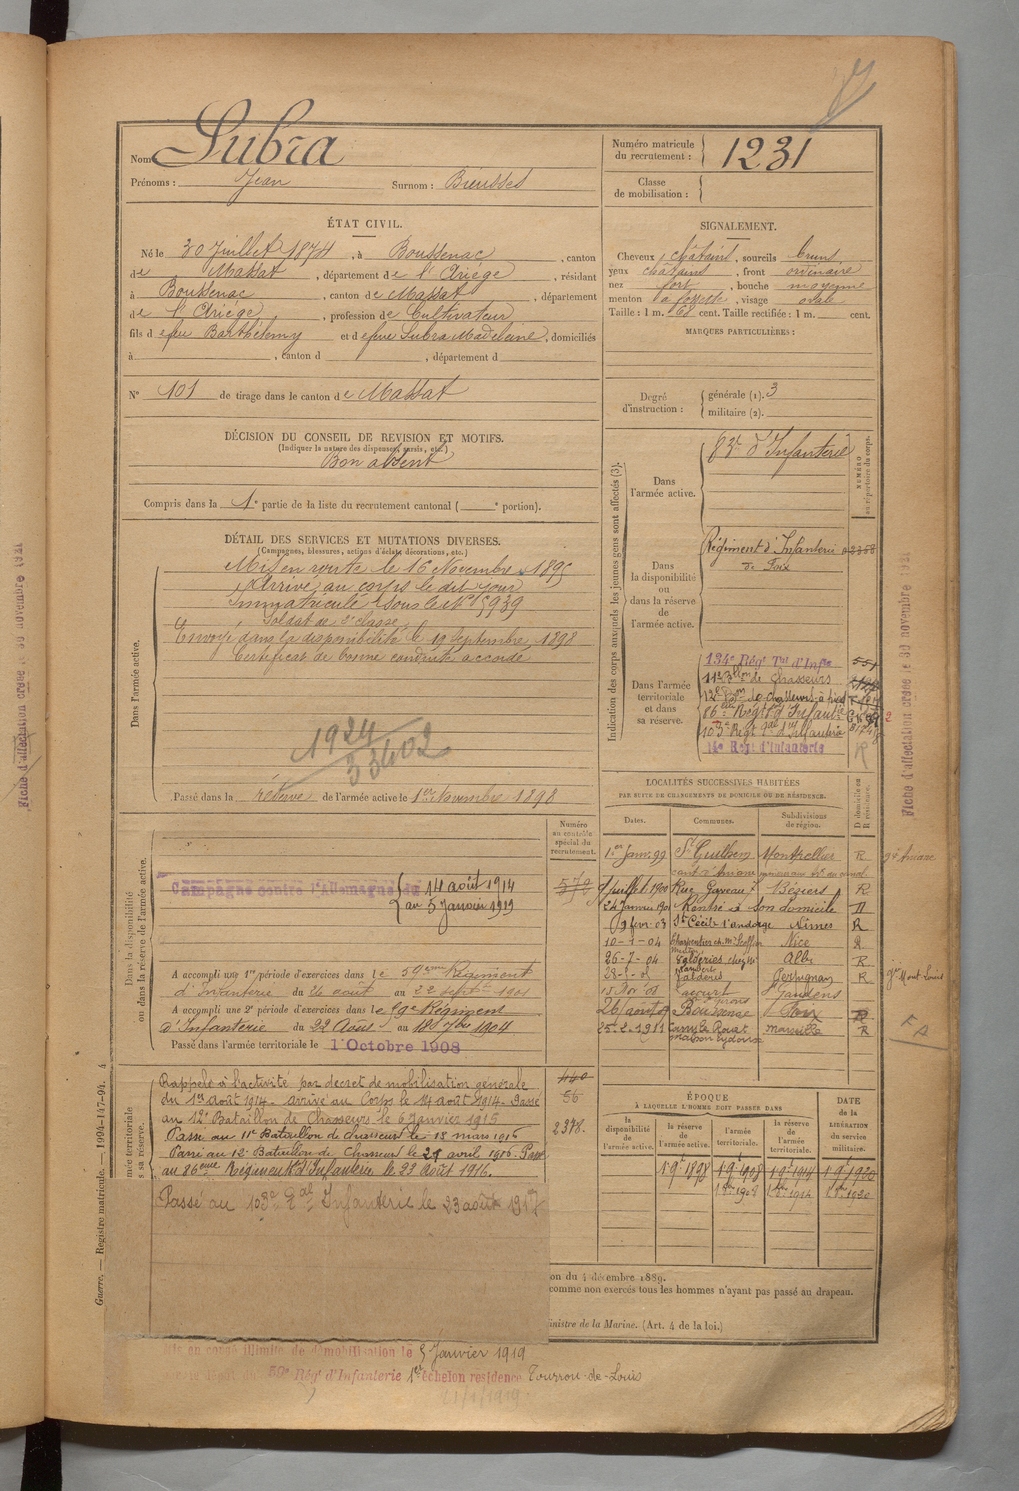 Nom Lubra
Prénoms : Jean Surnom :
Numéro matricule du recrutement : 1231
Classe de mobilisation :
ÉTAT CIVIL.
Né le 30 Juillet 1874, à Boussenac, canton
de Massat, département de l'Ariége, résidant
à Boussenac, canton de Massat, département
de l'Ariége, profession de Cultivateur
fils d efeu Barthélemy et d efeue Lubra Madeleine, domiciliés
à , canton d , département d
N° 101 de tirage dans le canton de Massat
DÉCISION DU CONSEIL DE REVISION ET MOTIFS.
(Indiquer la nature des dispenses, sursis, etc.)
Bon absent
Compris dans la 1e partie de la liste du recrutement cantonal ( e portion).
SIGNALEMENT.
Cheveux châtains, sourcils bruns
yeux châtains, front ordinaire
nez fort, bouche moyenne
menton à fossette, visage ovale
Taille : 1 m. 68 cent. Taille rectifiée : 1 m. cent.
MARQUES PARTICULIÈRES :
Degré d'instruction :
générale (1). 3
militaire (2).
DÉTAIL DES SERVICES ET MUTATIONS DIVERSES.
(Campagnes, blessures, actions d'éclat, décorations, etc.)
Dans l'armée active.
Mis en route le 16 Novembre 1895
Arrivé au corps le dit jour
Immatriculé sous le N° 5939
Soldat de 2e classe
Envoyé dans la disponibilité le 19 Septembre 1898
Certificat de bonne conduite accordé
1924
33402
Passé dans la réserve de l'armée active le 1er Novembre 1898
Indication des corps auxquels les jeunes gens sont affectés (3).
NUMÉRO au répertoire du corps.
Dans l'armée active.
83e d'Infanterie
Dans la disponibilité ou dans la réserve de l'armée active.
Régiment d'Infanterie
de Foix
Dans l'armée territoriale et dans sa réserve.
134e Régt Tal d'Infie 551
11e Bllon de Chasseurs
12e Bon de chasseurs à pied
86eme Régt d'Infantie
103e Régt Tal d'Infanterie
14e Régt d'Infanterie
R
Fiche d'affectation créée le 30 novembre 1921
Dans la disponibilité ou dans la réserve de l'armée active.
Numéro au contrôle spécial du recrutement.
Campagne contre l'Allemagne du 14 août 1914
au 5 Janvier 1919
572
A accompli une 1re période d'exercices dans le 59eme Régiment
d'Infanterie du 26 août au 22 septbre 1901
A accompli une 2e période d'exercices dans le 59e Régiment
d'Infanterie du 22 Août au 18 7bre 1904
Passé dans l'armée territoriale le 1 Octobre 1908
LOCALITÉS SUCCESSIVES HABITÉES
PAR SUITE DE CHANGEMENTS DE DOMICILE OU DE RÉSIDENCE.
Dates. Communes. Subdivisions de région. D domicile ou R résidence.
1er Janv. 99 St Guilhem Montpellier R
Juillet 1900 Rue Gaveau 7 Béziers R
24 Janvier 1901 Rentré à son domicile
9 fevr 03 Ste Cécile d'andorge Nîmes R
10-1-04 Nice R
26-7-04 Albi R
28-1-05 Perpignan R
15 Nov 05 Lacourt St Gaudens
26 août 07 Boussenac Foix
25-2-1911 Marseille R
gie Aniane
gie Mont Louis
territoriale
sa réserve.
Rappelé à l'activité par décret de mobilisation générale
du 1er août 1914 - arrivé au Corps le 14 août 1914 - Passé
au 12e Bataillon de Chasseurs le 6 Janvier 1915
Passé au 11e Bataillon de chasseurs le 13 mars 1916
Passé au 12e Bataillon de Chasseurs le 29 avril 1916 - Passé
au 86eme Régiment d'Infanterie le 22 Août 1916.
Passé au 103e Rt al Infanterie le 23 août 1917
440
56
2378.
ÉPOQUE
À LAQUELLE L'HOMME DOIT PASSER DANS
la disponibilité de l'armée active. la réserve de l'armée active. l'armée territoriale. la réserve de l'armée territoriale. DATE de la LIBÉRATION du service militaire.
1 9e 1898 1 9e 1908 1 9e 1914 1 9e 1920
on du 4 décembre 1889.
comme non exercés tous les hommes n'ayant pas passé au drapeau.
inistre de la Marine. (Art. 4 de la loi.)
Mis en congé illimité de démobilisation le 5 Janvier 1919
dépôt du 59e Rég' d'Infanterie 1er échelon résidence Tourrou-de-Louis
Guerre. — Registre matricule. — 1994-147-94. 4
Fiche d'affectation créée le 30 novembre 1921